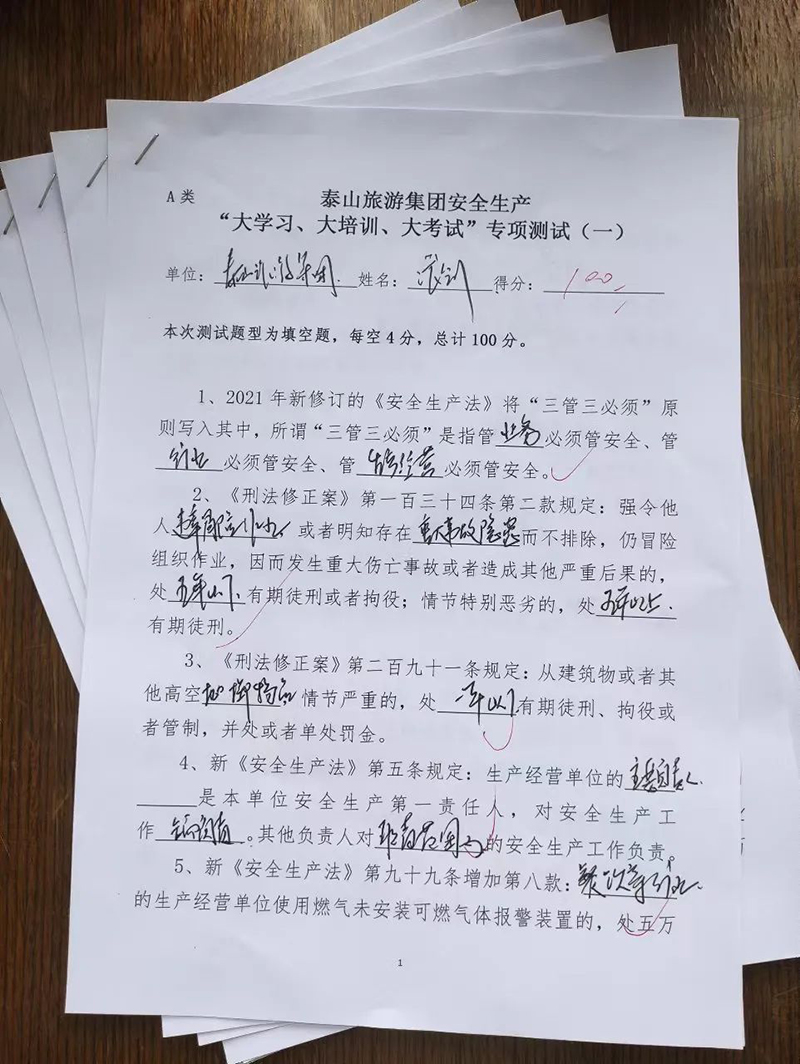 A类 泰山旅游集团安全生产
“大学习、大培训、大考试”专项测试（一）
单位：泰山旅游集团 姓名： 得分：100
本次测试题型为填空题，每空4分，总计100分。
1、2021年新修订的《安全生产法》将“三管三必须”原
则写入其中，所谓“三管三必须”是指管业务必须管安全、管
行业必须管安全、管生产经营必须管安全。
2、《刑法修正案》第一百三十四条第二款规定：强令他
人违章冒险作业或者明知存在重大事故隐患而不排除，仍冒险
组织作业，因而发生重大伤亡事故或者造成其他严重后果的，
处五年以下有期徒刑或者拘役；情节特别恶劣的，处五年以上
有期徒刑。
3、《刑法修正案》第二百九十一条规定：从建筑物或者其
他高空抛掷物品情节严重的，处一年以下有期徒刑、拘役或
者管制，并处或者单处罚金。
4、新《安全生产法》第五条规定：生产经营单位的主要负责人
是本单位安全生产第一责任人，对安全生产工
作全面负责。其他负责人对职责范围内的安全生产工作负责。
5、新《安全生产法》第九十九条增加第八款：餐饮等行业
的生产经营单位使用燃气未安装可燃气体报警装置的，处五万
1